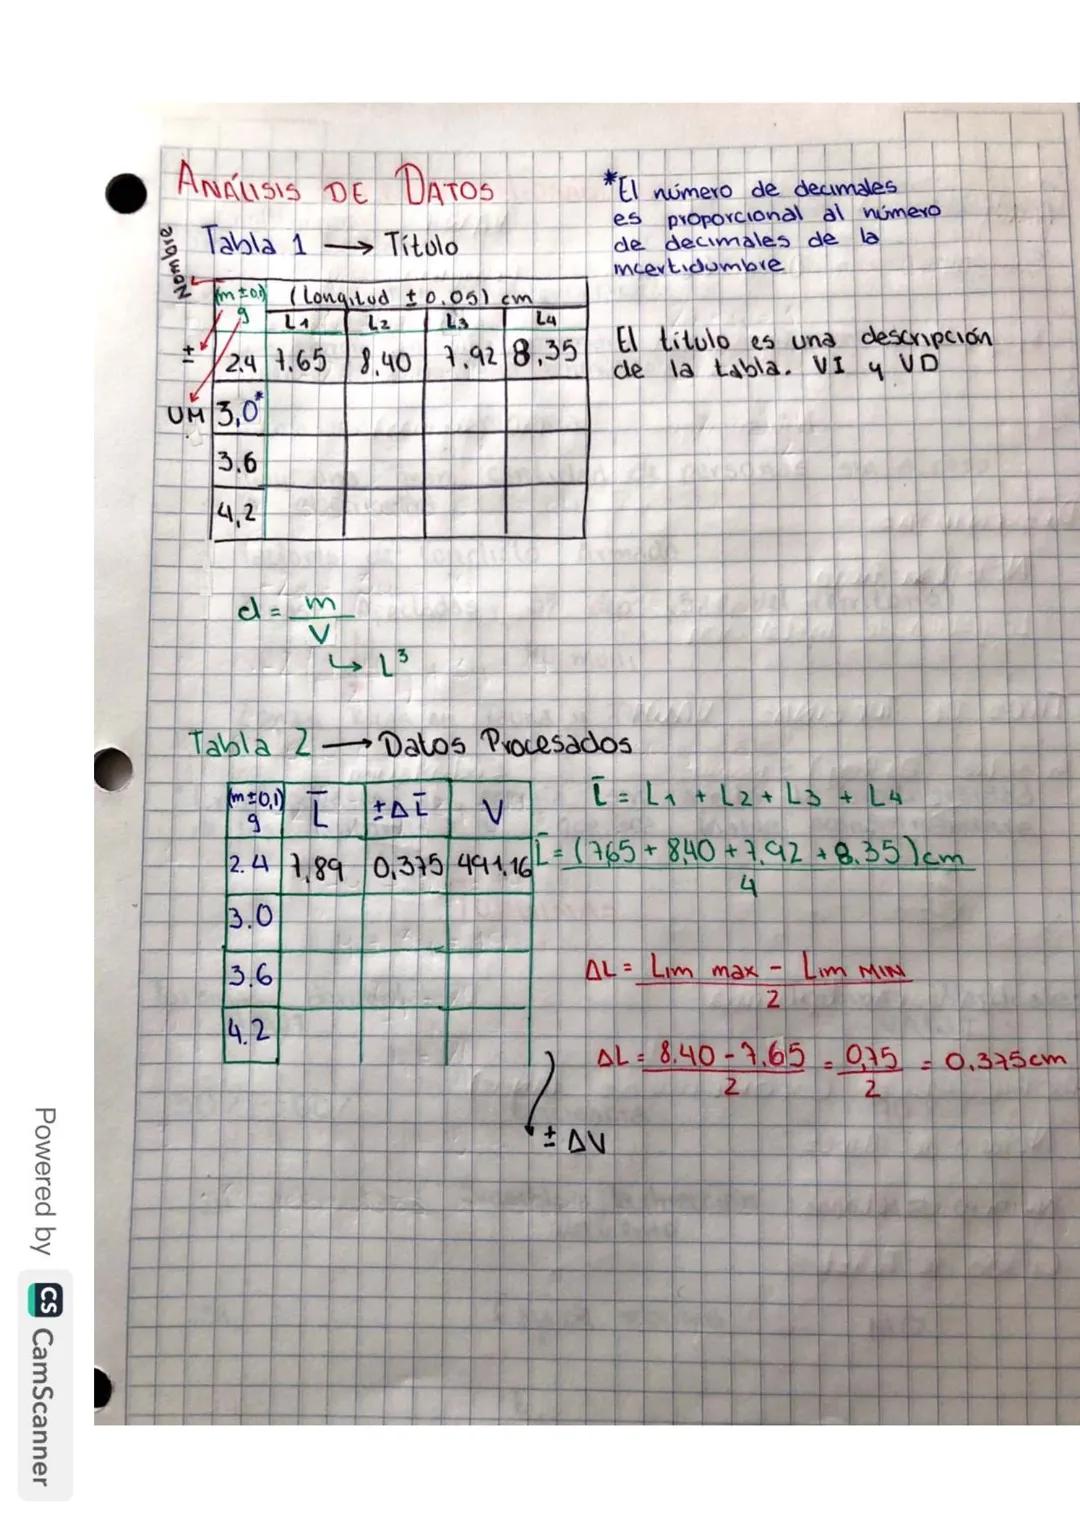 ANÁLISIS DE DATOS
Tabla 1 → Título
Nombre
(m ±0,1) g (Longitud ± 0,05) cm
L1 L2 L3 L4
± 2.4 7.65 8,40 7.92 8,35
UM 3,0*
3.6
4,2
*El número de decimales
es proporcional al número
de decimales de la
incertidumbre
El título es una descripción
de la tabla. VI y VD
d = m / V
↳ L³
Tabla 2 → Datos Procesados
(m ±0,1) g L̄ ±ΔL̄ V
2.4 7,89 0,375 491.16
3.0
3.6
4.2
± ΔV
L̄ = L1 + L2 + L3 + L4
L̄ = (7,65 + 8,40 + 7,92 + 8,35) cm / 4
ΔL = Lim max - Lim MIN / 2
ΔL = 8.40 - 7.65 / 2 = 0,75 / 2 = 0.375cm
Powered by CS CamScanner